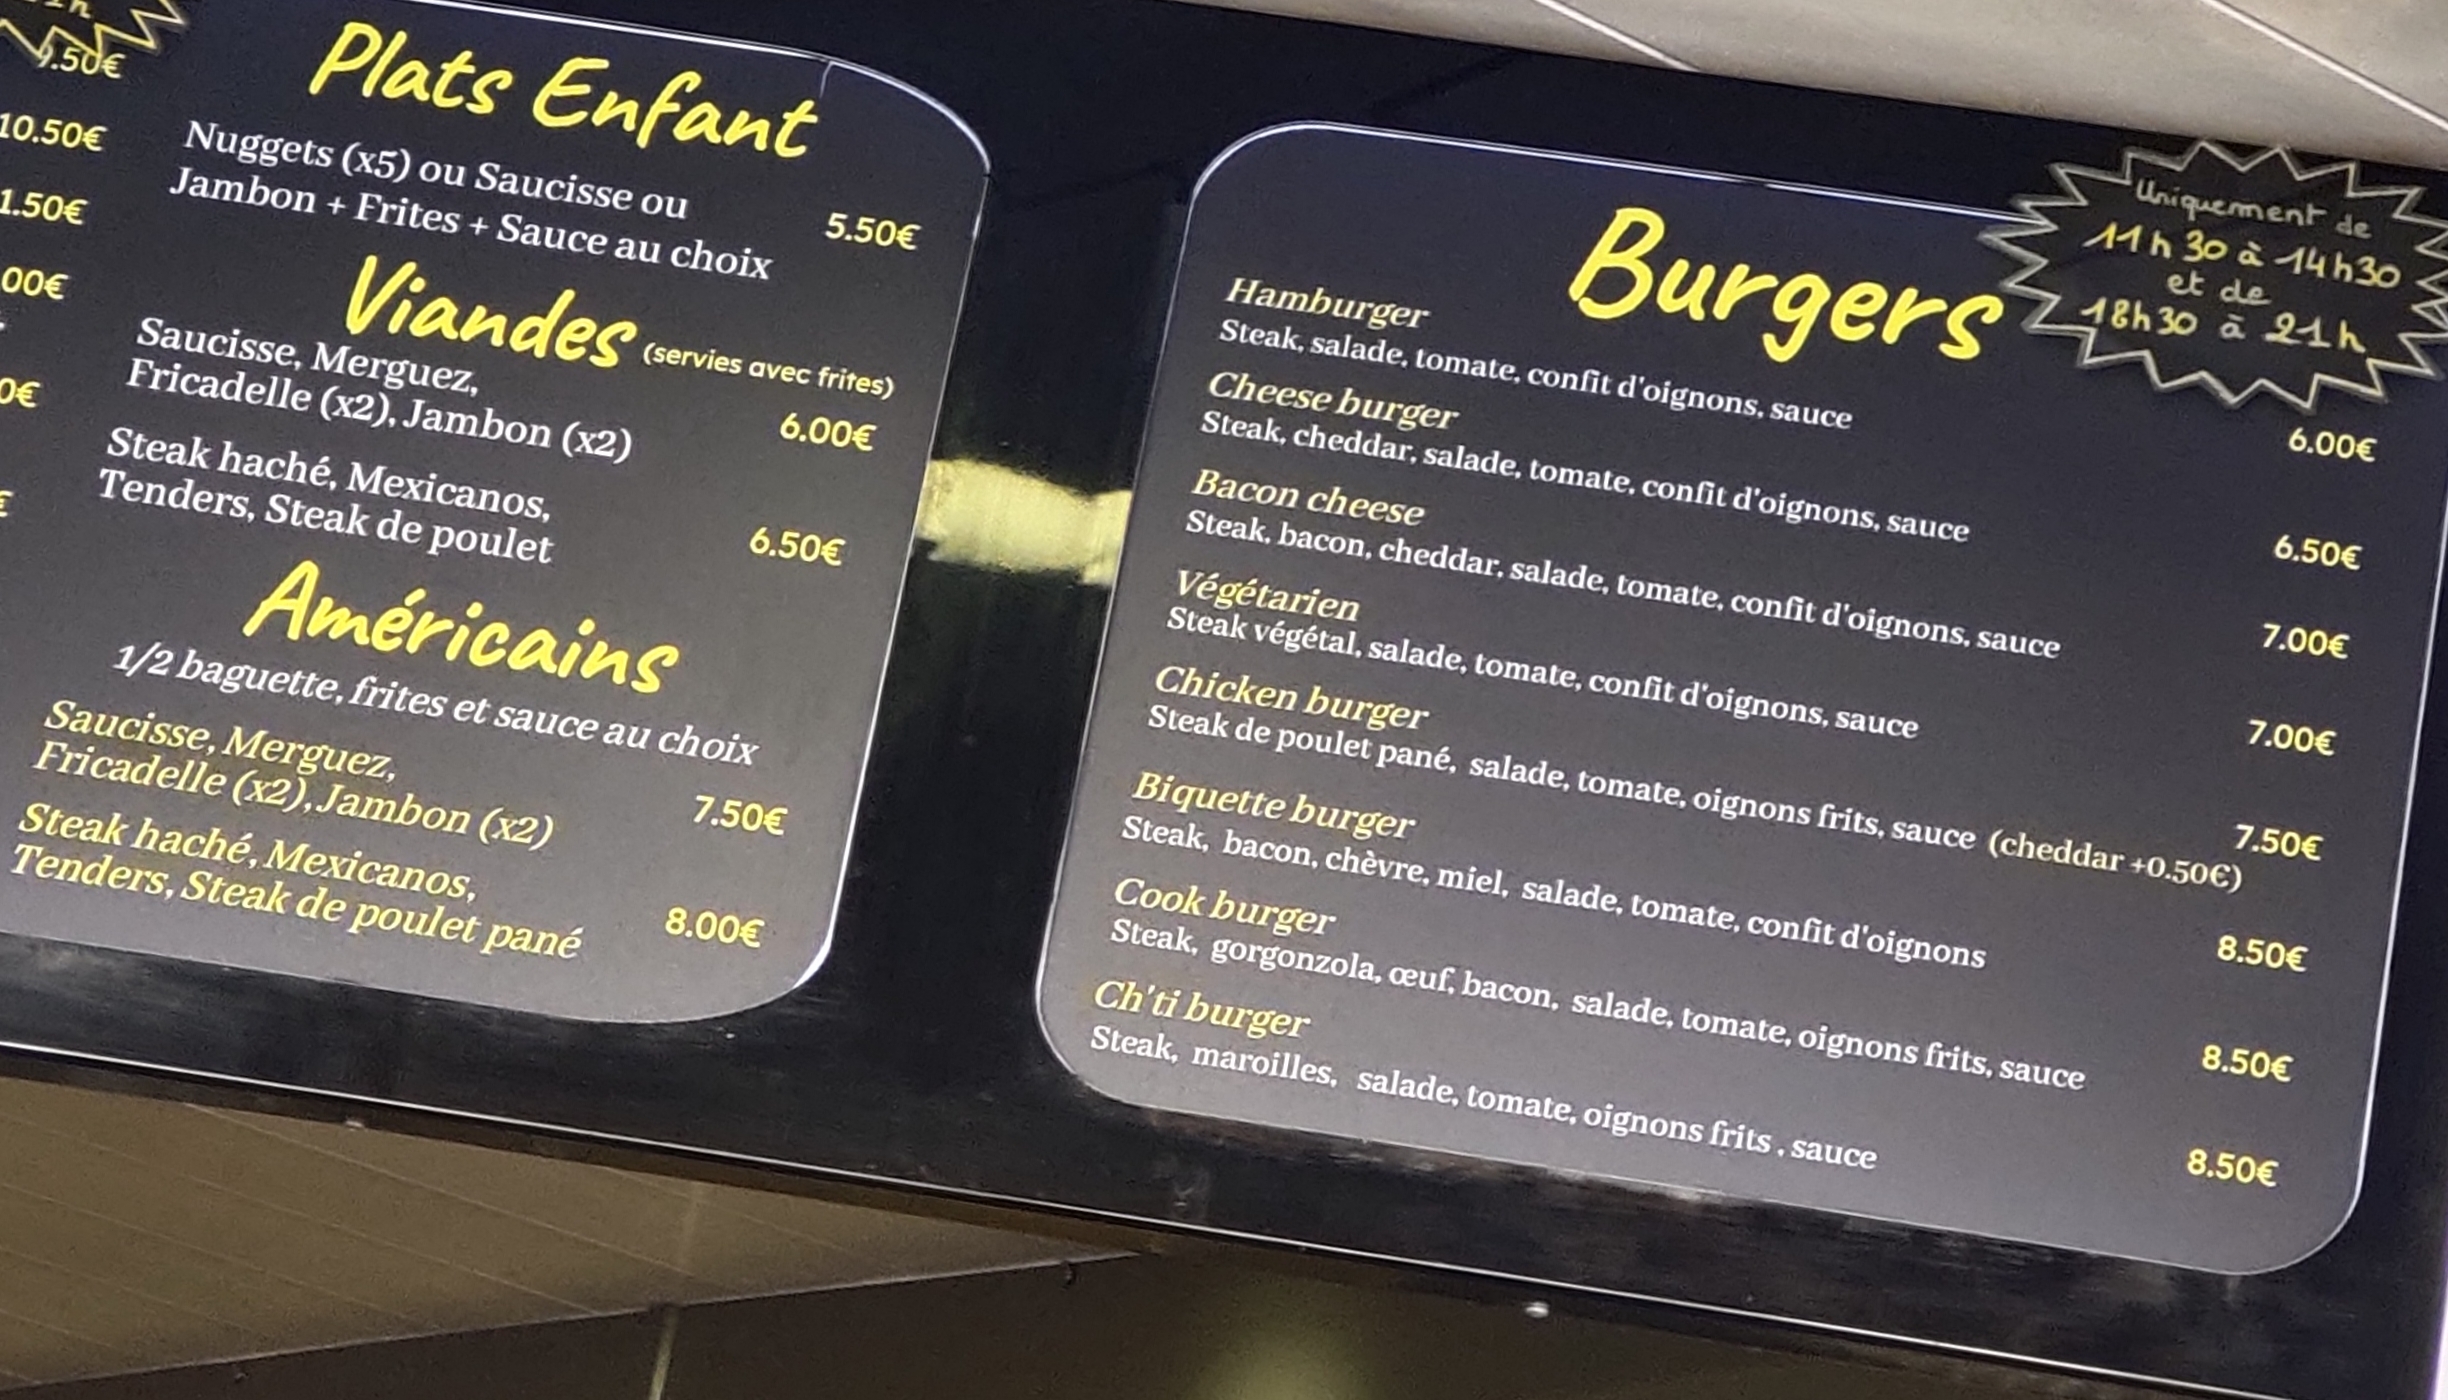 9.50€
10.50€
1.50€
.00€
0€
€
Plats Enfant
Nuggets (x5) ou Saucisse ou
Jambon + Frites + Sauce au choix
5.50€
Viandes (servies avec frites)
Saucisse, Merguez,
Fricadelle (x2), Jambon (x2)
6.00€
Steak haché, Mexicanos,
Tenders, Steak de poulet
6.50€
Américains
1/2 baguette, frites et sauce au choix
Saucisse, Merguez,
Fricadelle (x2), Jambon (x2)
7.50€
Steak haché, Mexicanos,
Tenders, Steak de poulet pané
8.00€
Burgers
Uniquement de
11h30 à 14h30
et de
18h30 à 21h
Hamburger
Steak, salade, tomate, confit d'oignons, sauce
6.00€
Cheese burger
Steak, cheddar, salade, tomate, confit d'oignons, sauce
6.50€
Bacon cheese
Steak, bacon, cheddar, salade, tomate, confit d'oignons, sauce
7.00€
Végétarien
Steak végétal, salade, tomate, confit d'oignons, sauce
7.00€
Chicken burger
Steak de poulet pané, salade, tomate, oignons frits, sauce (cheddar +0.50€)
7.50€
Biquette burger
Steak, bacon, chèvre, miel, salade, tomate, confit d'oignons
8.50€
Cook burger
Steak, gorgonzola, œuf, bacon, salade, tomate, oignons frits, sauce
8.50€
Ch'ti burger
Steak, maroilles, salade, tomate, oignons frits , sauce
8.50€